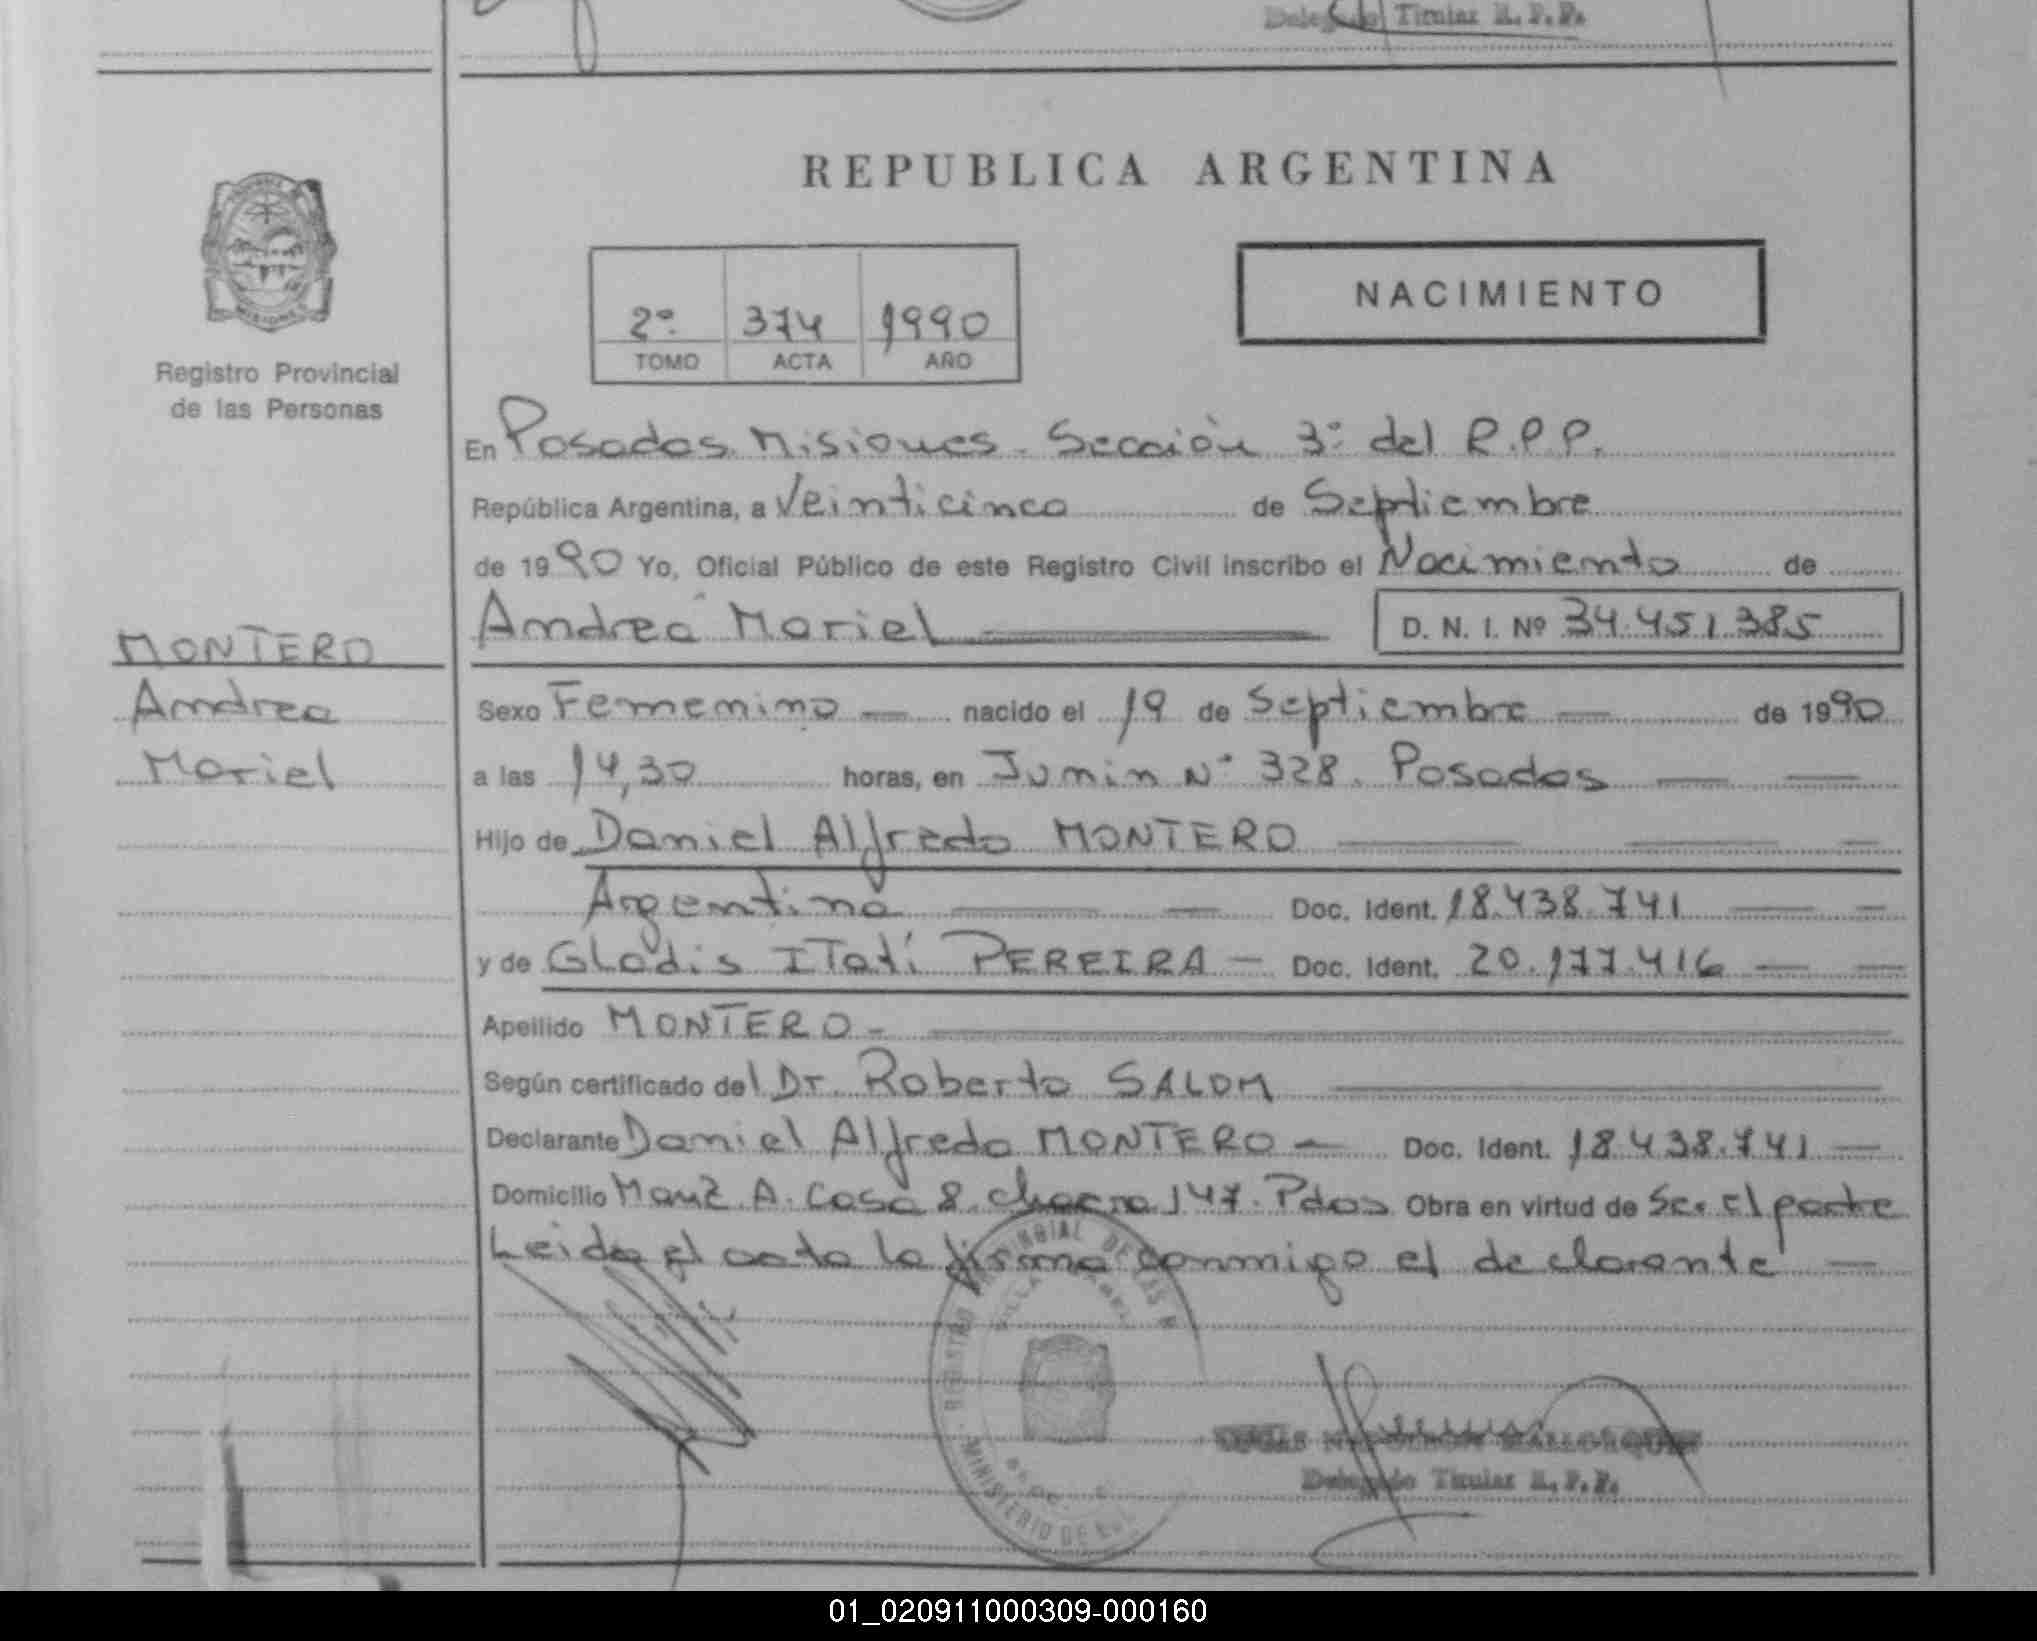 Delegado Titular R. P. P.
REPUBLICA ARGENTINA
NACIMIENTO
2º 374 1990
TOMO ACTA AÑO
Registro Provincial
de las Personas
En Posadas Misiones - Sección 3º del R.P.P.
República Argentina, a Veinticinco de Septiembre
de 1990 Yo, Oficial Público de este Registro Civil inscribo el Nacimiento de
Andrea Mariel D. N. I. Nº 34.451.385
MONTERO
Andrea
Mariel
Sexo Femenino — nacido el 19 de Septiembre — de 1990
a las 14,30 horas, en Junin Nº 328. Posadas — —
Hijo de Daniel Alfredo MONTERO — — —
Argentina — — Doc. Ident. 18.438.741 — —
y de Gladis ITatí PEREIRA — Doc. Ident. 20.177.416 — —
Apellido MONTERO -
Según certificado del Dr. Roberto SALOM
Declarante Daniel Alfredo MONTERO — Doc. Ident. 18.438.741 —
Domicilio Manz. A. Casa 8. chacra 147. Pdas Obra en virtud de Ser el padre
Leida el acta la firma conmigo el declarante —
REGISTRO PROVINCIAL DE LAS
MINISTERIO DE
Delegado Titular R. P. P.
01_020911000309-000160